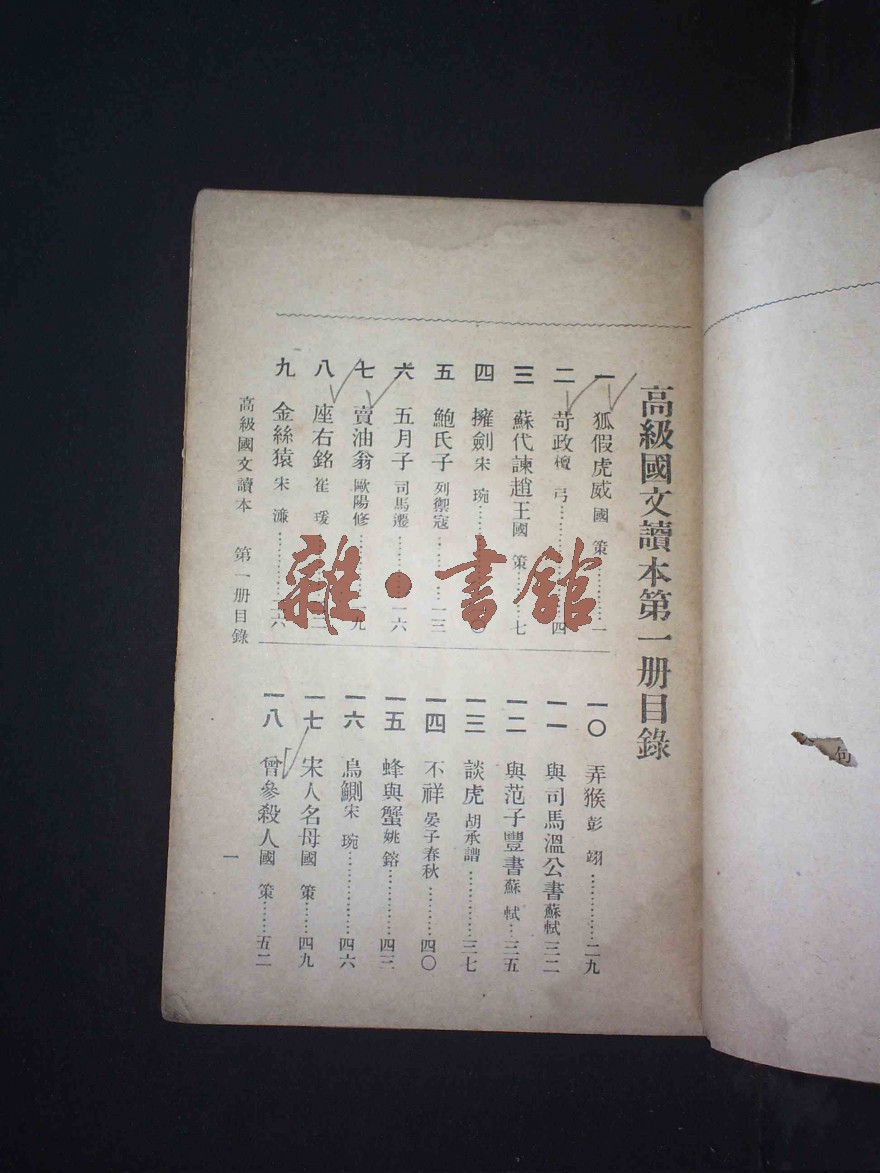 高級國文讀本第一册目錄
一 狐假虎威 國策…………一
二 苛政 檀弓…………四
三 蘇代諫趙王 國策…………七
四 擁劍 宋琬…………〇
五 鮑氏子 列禦寇…………一三
六 五月子 司馬遷…………一六
七 賣油翁 歐陽修…………一九
八 座右銘 崔瑗
九 金絲猿 宋濂…………二六
一〇 弄猴 彭翊…………二九
一一 與司馬溫公書 蘇軾 三二
一二 與范子豐書 蘇軾…三五
一三 談虎 胡承譜…………三七
一四 不祥 晏子春秋…………四〇
一五 蜂與蟹 姚鎔…………四三
一六 烏鰂 宋琬…………四六
一七 宋人名母 國策………四九
一八 曾參殺人 國策……五二
高級國文讀本 第一册目錄
一
雜·書館
句